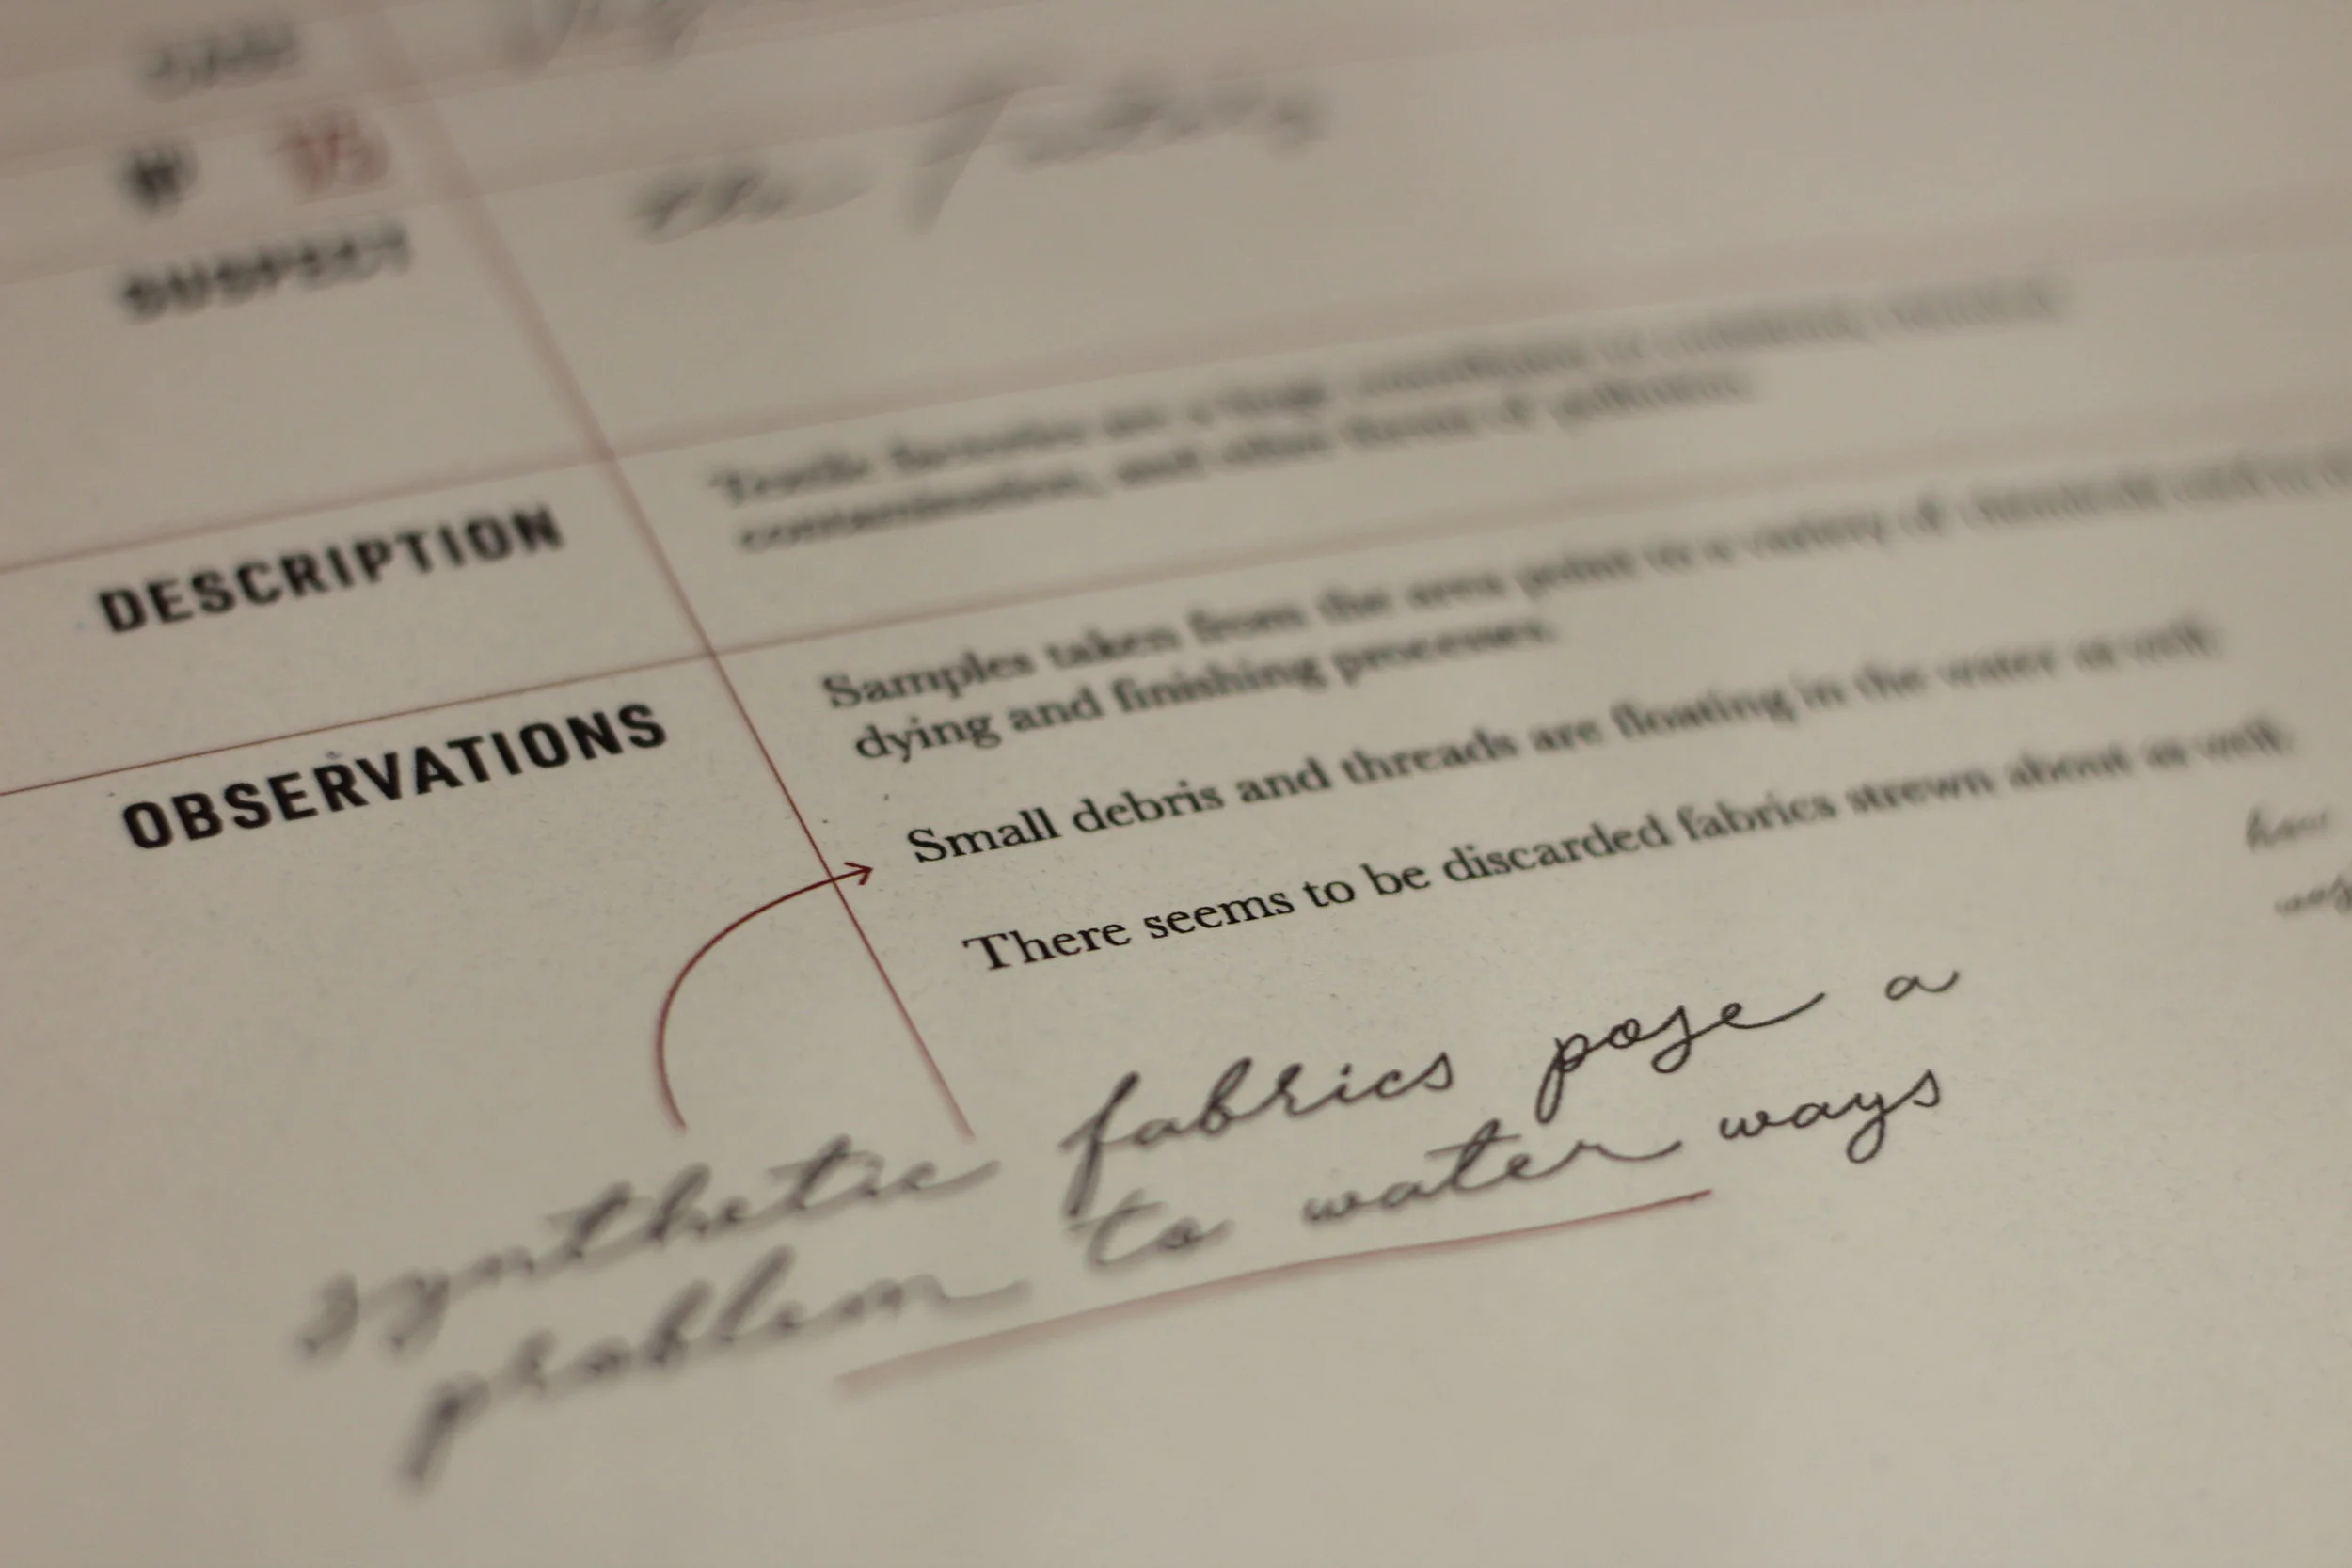 SUSPECT
the Factory
DESCRIPTION
Textile factories are a huge
contamination, and other forms of pollution.
OBSERVATIONS
Samples taken from the area point to a variety of chemicals
dying and finishing processes.
Small debris and threads are floating in the water as well.
There seems to be discarded fabrics strewn about as well.
synthetic fabrics pose a
problem to water ways